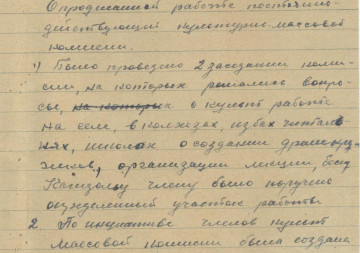 О проделанной работе постоянно-
действующей культурно-массовой
комиссии.
1) Было проведено 2 заседания комис-
сии, на которых решались вопро-
сы, на которых о культ работе
на селе, в колхозах, избах читаль-
нях, школах о создании драмкруж-
ков, организации лекций, бесед
Каждому члену было поручено
определенный участок работы
2. По инициативе членов культ
массовой комиссии была создана